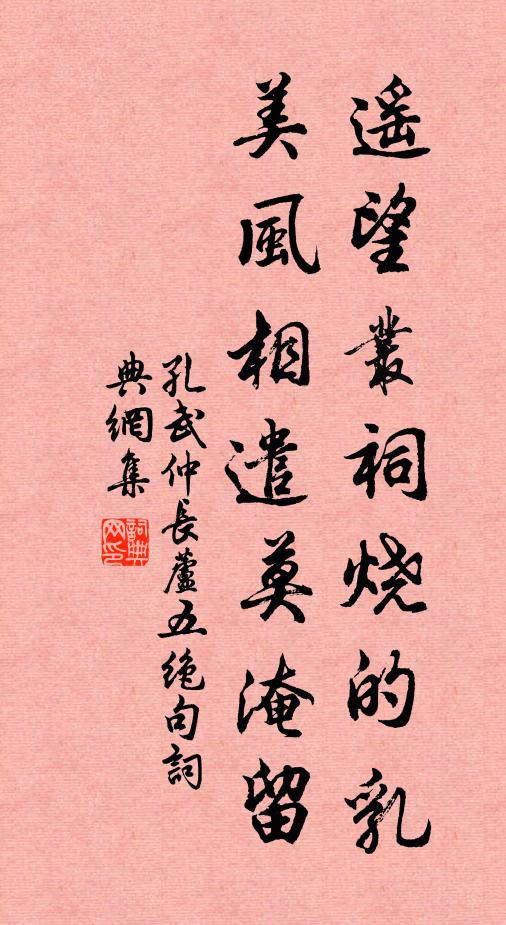 遥望叢祠烧的乳
美風相遣莫淹留
孔武仲長蘆五絶句詞
典網集
詞典網印